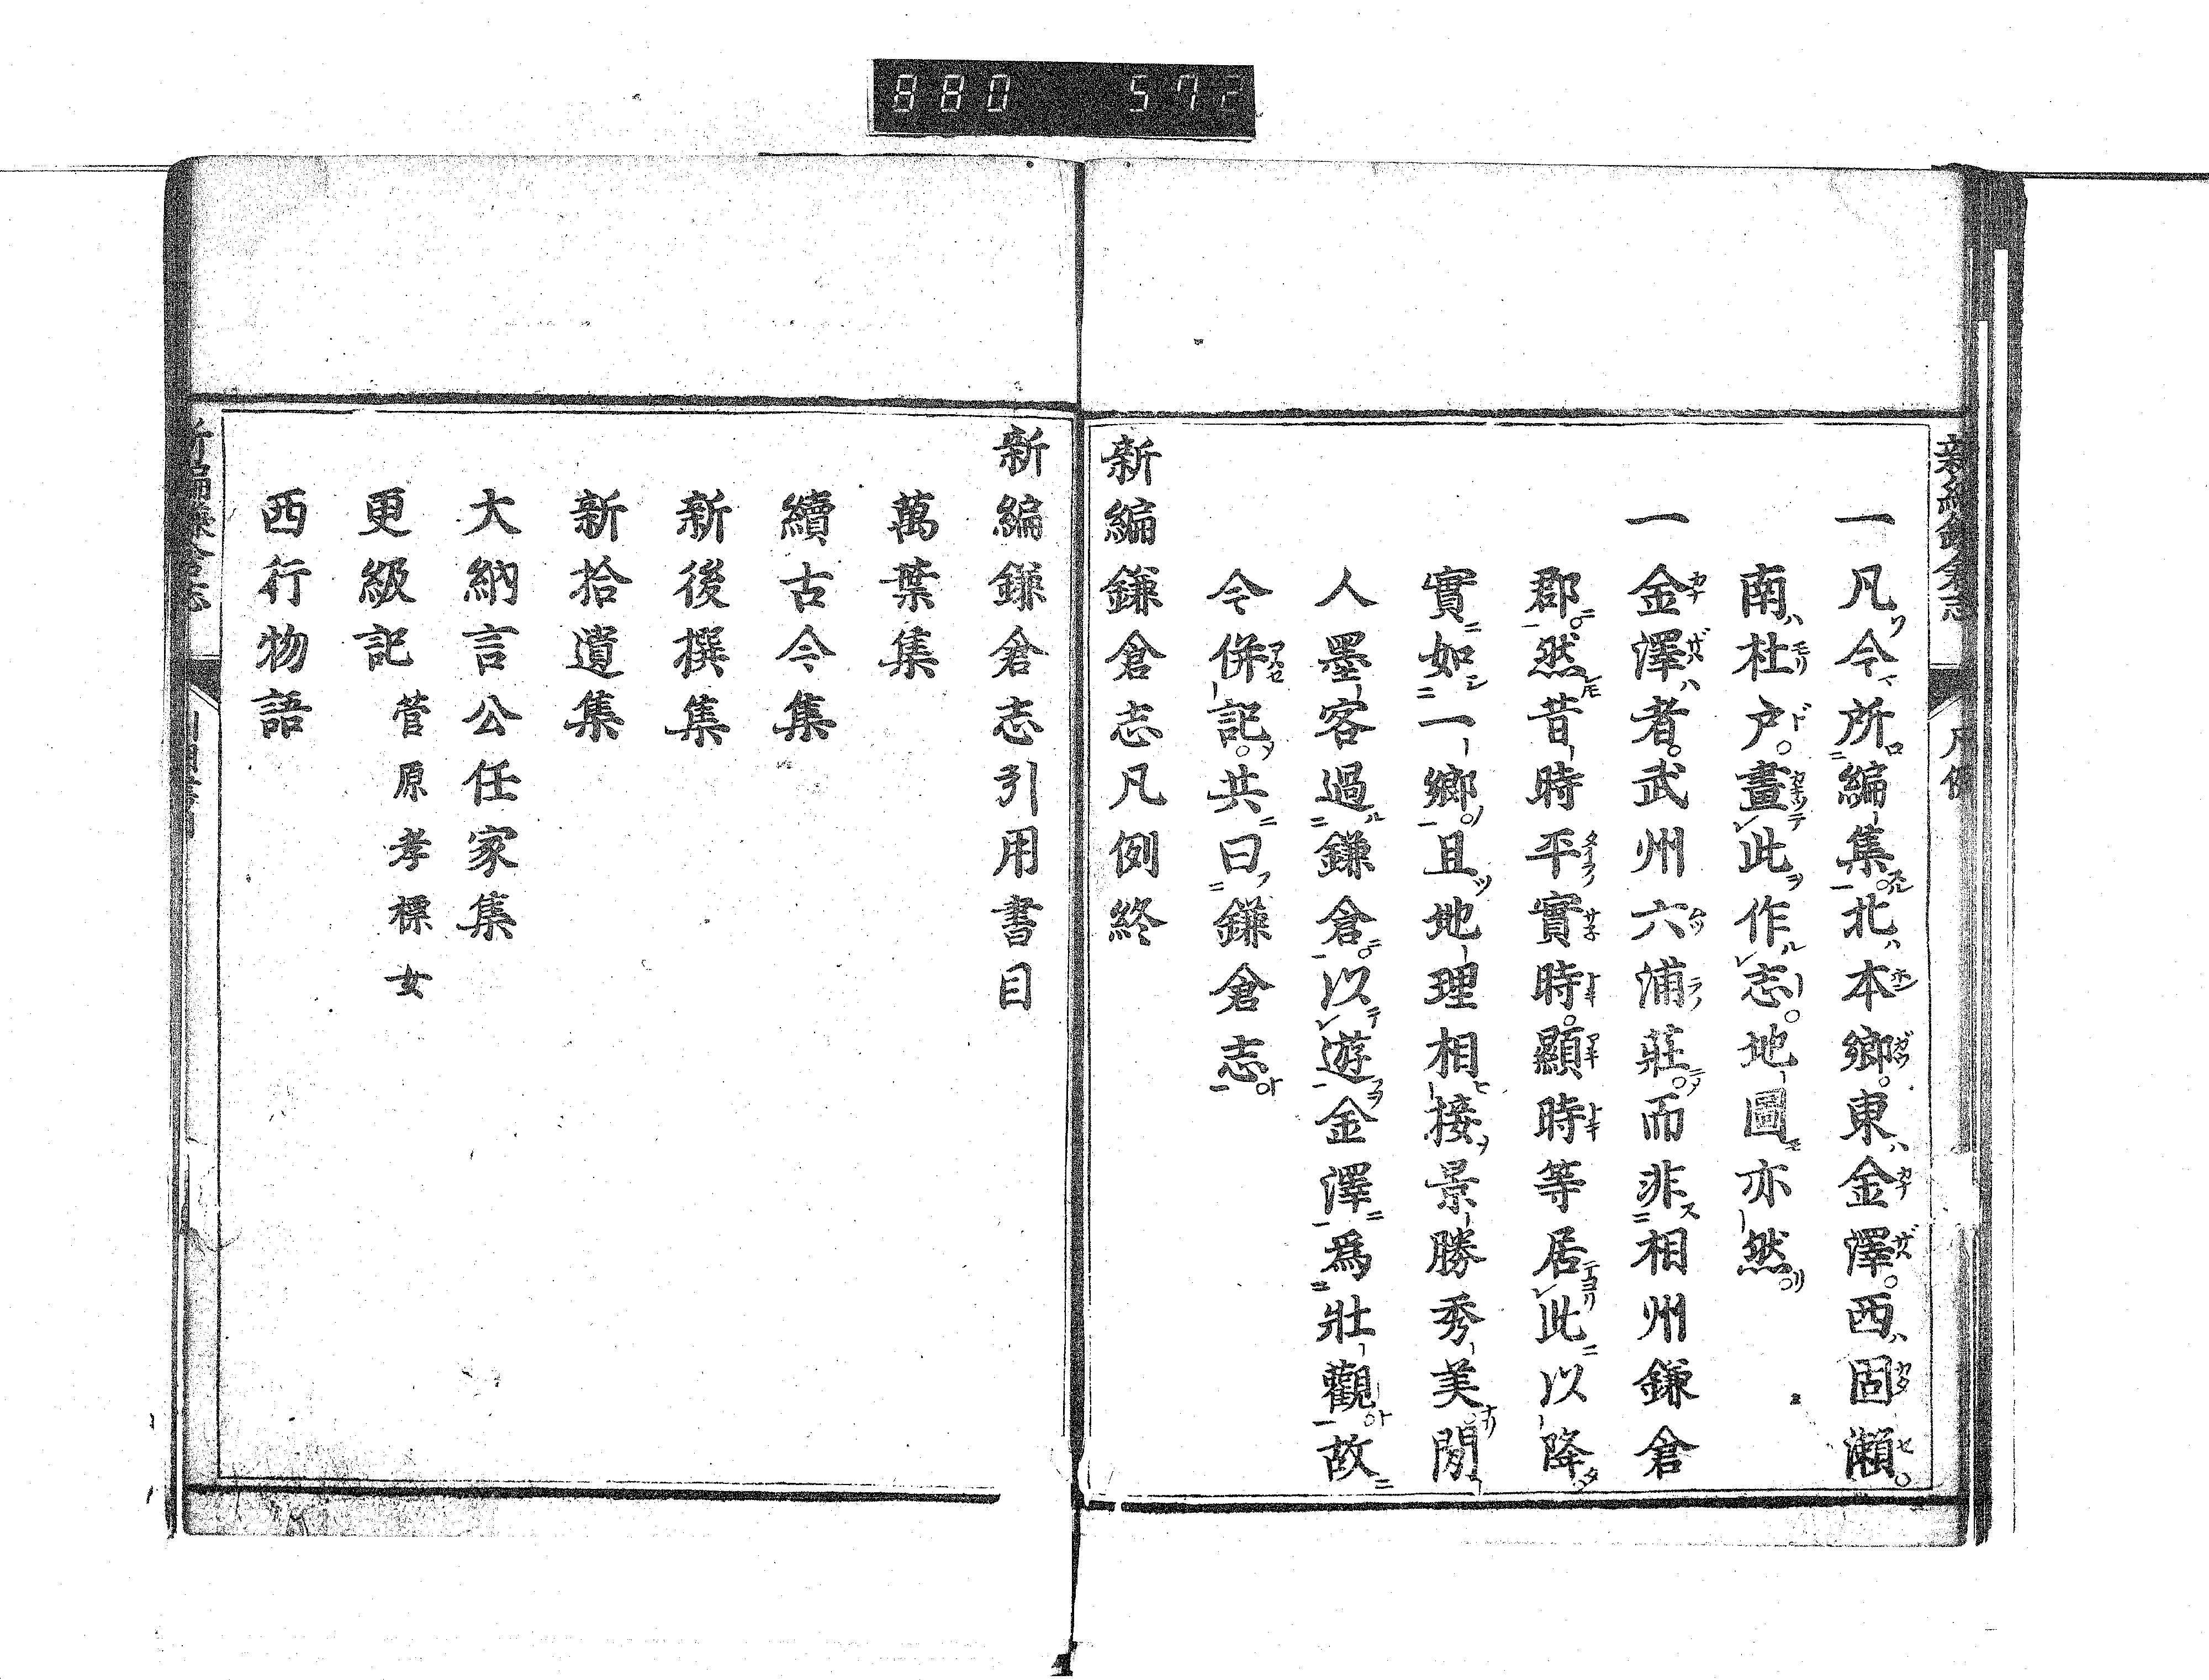 880 572
一凡今所編集北本郷東金澤西固瀬
南杜戸畫此作志地圖亦然
一金澤者武州六浦莊而非相州鎌倉
郡然昔時平實時顯時等居此以降
實如一郷且地理相接景勝秀美閒
人墨客過鎌倉以遊金澤爲壯觀故
今併記共曰鎌倉志
新編鎌倉志凡例終
新編鎌倉志引用書目
萬葉集
續古今集
新後撰集
新拾遺集
大納言公任家集
更級記 菅原孝標女
西行物語